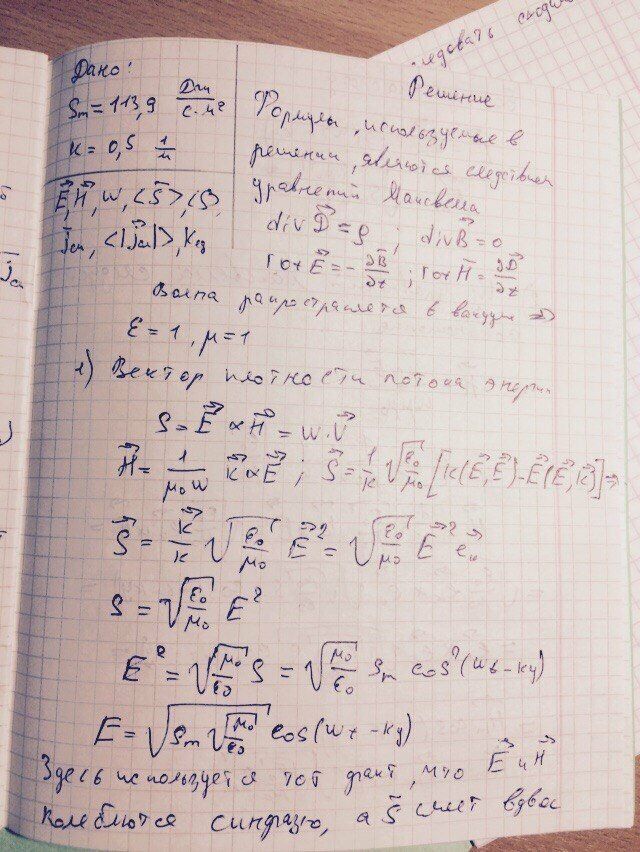 ледовать сходим
Дано:
Sm = 113,9 Дж/с·м²
k = 0,5 1/м
E⃗, H⃗, w, <S⃗>, <S>,
jсм, <|j⃗см|>, Kед
Решение
Формулы, используемые в
решении, являются следствием
уравнений Максвелла
div D⃗ = ρ ; div B⃗ = 0
rot E⃗ = - ∂B⃗/∂t ; rot H⃗ = ∂D⃗/∂t
Волна распространяется в вакууме ⇒
ε = 1, μ = 1
1) Вектор плотности потока энергии
S = E⃗ × H⃗ = w · V⃗
H⃗ = 1/(μ₀w) k⃗ × E⃗ ; S⃗ = 1/k √(ε₀/μ₀) [k(E⃗,E⃗) - E⃗(E⃗,k⃗)] ⇒
S⃗ = k⃗/k √(ε₀/μ₀) E⃗² = √(ε₀/μ₀) E⃗²
S = √(ε₀/μ₀) E²
E² = √(μ₀/ε₀) S = √(μ₀/ε₀) Sm cos²(wt - ky)
E = √(Sm √(μ₀/ε₀)) cos(wt - ky)
Здесь используется тот факт, что E⃗ и H⃗
колеблются синфазно, а S⃗ вдвое
jсм